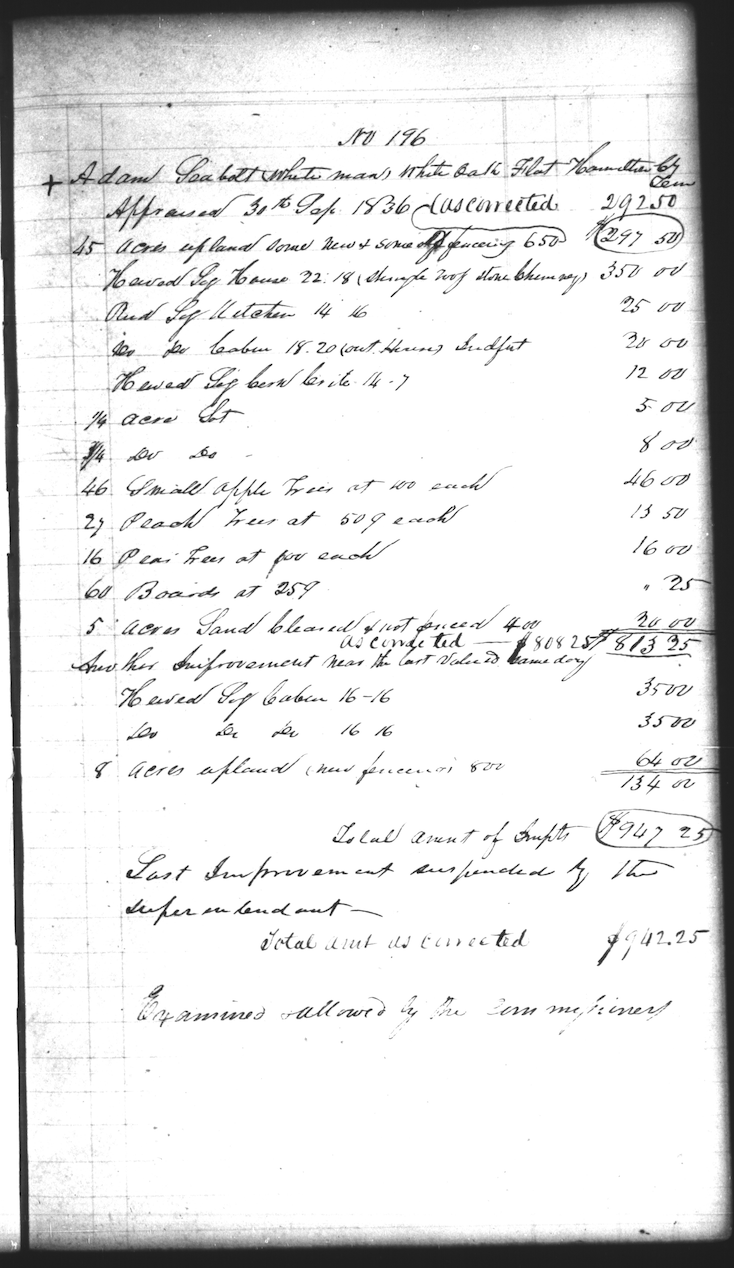 No 196
+ Adam Seabolt (White man) White Oak Flat Hamilton Cty
Ten
Appraised 30th Sep 1836 (as corrected 292 50
45 acres upland some new & some old fencing 650 $297 50
Hewed Log House 22.18 (Shingle roof stone Chimney) 350 00
Rud Log Kitchen 14 16 25 00
Do Do Cabin 18.20 (out House) Indft 20 00
Hewed Log Corn Crib 14-7 12 00
1/4 acre Lot 5 00
3/4 Do Do 8 00
46 Small apple Trees at 100 each 46 00
27 Peach Trees at 50¢ each 13 50
16 Pear Trees at 100 each 16 00
60 Boards at 25¢ " 25
5 acres Land Cleared & not fenced 400 20 00
as corrected — $808 25 $813 25
Another Improvement near the last valued same day
Hewed Log Cabin 16-16 35 00
Do Do Do 16 16 35 00
8 acres upland (new fencing) 800 64 00
134 00
Total amnt of Impts $947 25
Last Improvement suspended by the
superentendant —
Total amt as corrected $942.25
Examined & allowed by the Commissioners